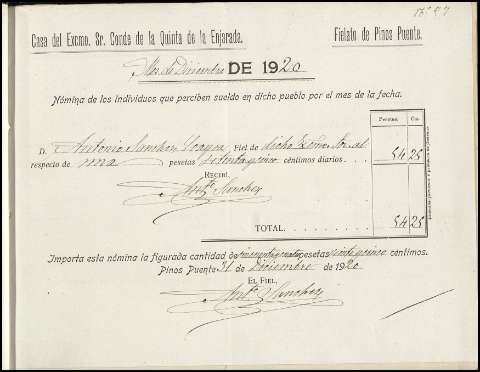 Casa del Excmo. Sr. Conde de la Quinta de la Enjarada.
Fielato de Pinos Puente.
Mes de Diciembre DE 1920
Nómina de los individuos que perciben sueldo en dicho pueblo por el mes de la fecha.
Pesetas. Cs.
D. Antonio Sanchez Fiel de dicho Exmo. Sr. al
respecto de una pesetas setenta y cinco céntimos diarios 54 25
RECIBÍ,
Antº Sanchez
TOTAL. 54 25
Importa esta nómina la figurada cantidad de cincuenta y cuatro pesetas veinte y cinco centimos.
Pinos Puente 31 de Diciembre de 1920
EL FIEL,
Antº Sanchez